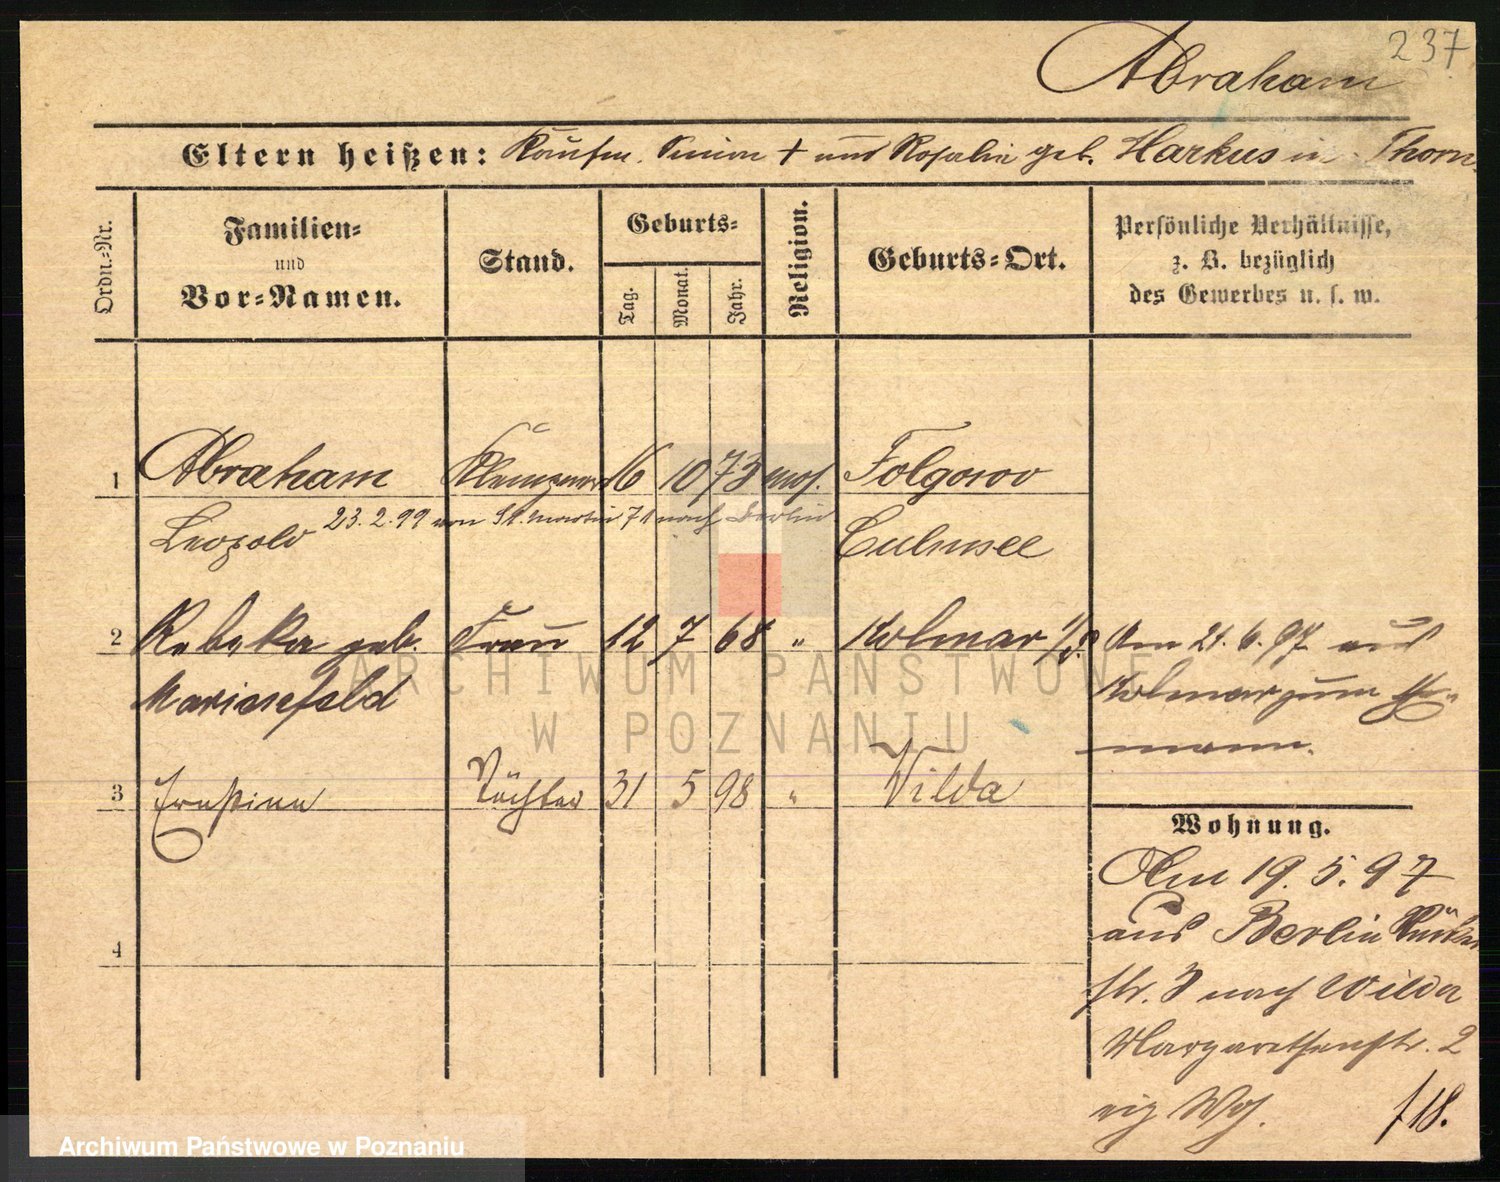 237
Abraham
Eltern heißen: Kaufm. Simon + und Rosalie geb. Harkus in Thorn
Ordn.-Nr.
Familien-
und
Vor-Namen.
Stand.
Geburts-
Tag.
Monat.
Jahr.
Religion.
Geburts-Ort.
Persönliche Verhältnisse,
z. B. bezüglich
des Gewerbes u. s. w.
1 Abraham Klempner 16 10 73 mos. Folgowo
23.2.99 von St. Martin 71 nach Berlin
Leopold Culmsee
2 Rebeka geb. Frau 12 7 68 " Kolmar i/P. Am 21.6.97 aus
Marienfeld Kolmar zum Ehe-
mann.
3 Ernstine Töchter 31 5 98 " Wilda
Wohnung.
Am 19.5.97
aus Berlin
str. 3 nach Wilda
4
Margarethenstr. 2
eig Whg. f 18.
ARCHIWUM PAŃSTWOWE
W POZNANIU
Archiwum Państwowe w Poznaniu